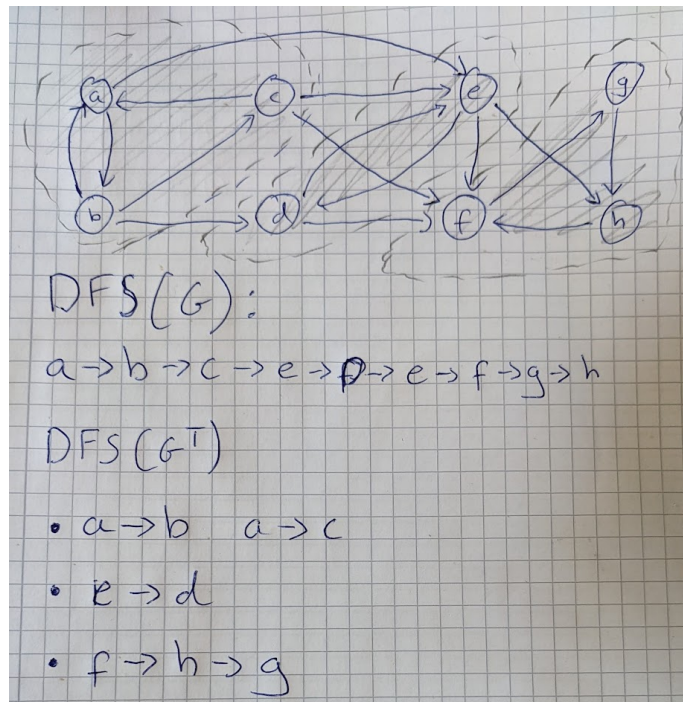 a c e g
b d f h
DFS(G):
a → b → c → e → D → e → f → g → h
DFS(Gᵀ)
• a → b a → c
• e → d
• f → h → g